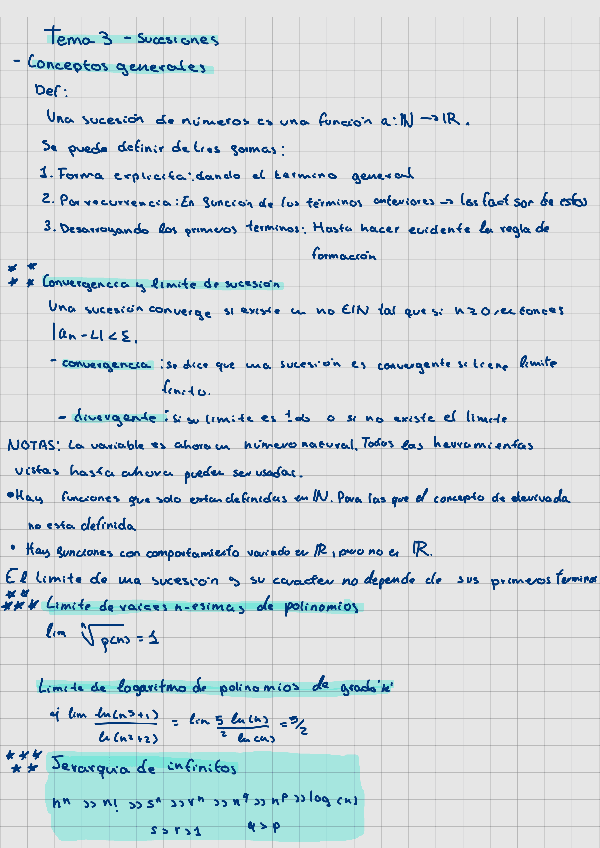 Tema 3 - Sucesiones
- Conceptos generales
Def:
Una sucesión de números es una función a: ℕ → ℝ.
Se puede definir de tres formas:
1. Forma explicita: dando el termino general
2. Por recurrencia: En función de los términos anteriores → los fact son de estos
3. Desarroyando los primeros terminos: Hasta hacer evidente la regla de
formación
** ** Convergencia y limite de sucesión
Una sucesión converge si existe un no ∈ ℕ tal que si n ≥ 0, entonces
|an - L| < Σ.
- convergencia: se dice que una sucesión es convergente si tiene limite
finito.
- divergente: si su limite es ±∞ o si no existe el limite
NOTAS: La variable es ahora un número natural. Todas las herramientas
vistas hasta ahora pueden ser usadas.
• Hay funciones que solo estan definidas en ℕ. Para las que el concepto de derivada
no esta definida
• Hay funciones con comportamiento variado en ℝ, pero no en ℝ.
El limite de una sucesión y su caracter no depende de sus primeros terminos
** *** Limite de raices n-esimas de polinomios
lim ⁿ√p(n) = 1
Limite de logaritmo de polinomios de grado "k"
ej lim ln(n⁵+1) / ln(n²+2) = lim 5 ln(n) / 2 ln(n) = 5/2
*** ** Jerarquia de infinitos
nⁿ >> n! >> sⁿ >> rⁿ >> n^q >> n^p >> log(n)
s > r > 1 q > p